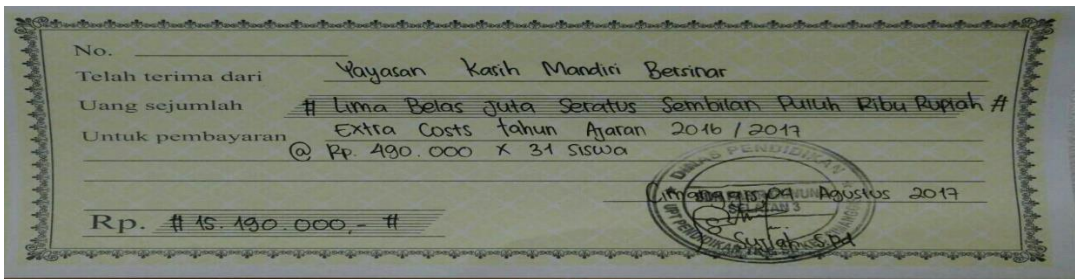 No.
Telah terima dari Yayasan Kasih Mandiri Bersinar
Uang sejumlah # Lima Belas Juta Seratus Sembilan Puluh Ribu Rupiah #
Untuk pembayaran Extra Costs tahun Ajaran 2016 / 2017
@ Rp. 490.000 x 31 siswa
DINAS PENDIDIKAN
09 Agustus 2017
SELATAN 3
Rp. # 15.190.000,- #
S.Pd